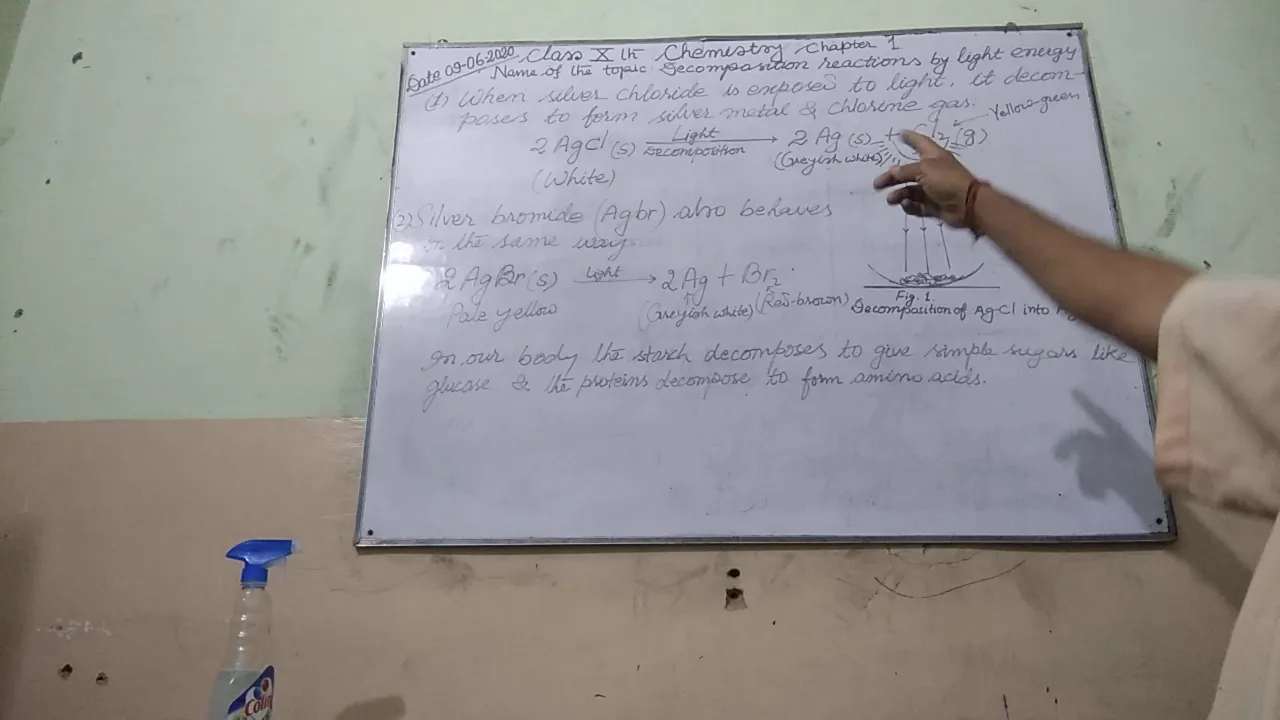 Date 09-06-2020 Class X th Chemistry Chapter 1
Name of the topic Decomposition reactions by light energy
(1) When silver chloride is exposed to light, it decom-
poses to form silver metal & chlorine gas.
Yellow-green
2 AgCl (s) Light Decomposition → 2 Ag (s) + Cl2 (g)
(White) (Greyish white)
(2) Silver bromide (Agbr) also behaves
in the same way
2 AgBr (s) Light → 2 Ag + Br2
Pale yellow (Greyish white) (Red-brown)
Fig. 1.
Decomposition of AgCl into
In our body the starch decomposes to give simple sugars like
glucose & the proteins decompose to form amino acids.
Colin